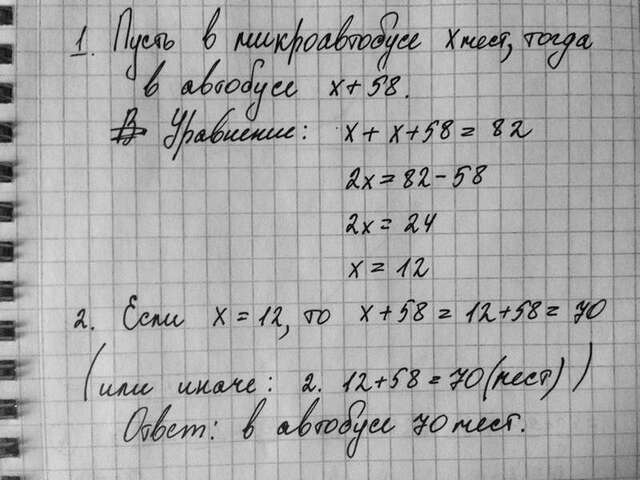 1. Пусть в микроавтобусе x мест, тогда
в автобусе x+58.
Уравнение: x+x+58=82
2x=82-58
2x=24
x=12
2. Если x=12, то x+58=12+58=70
(или иначе: 2. 12+58=70(мест))
Ответ: в автобусе 70 мест.